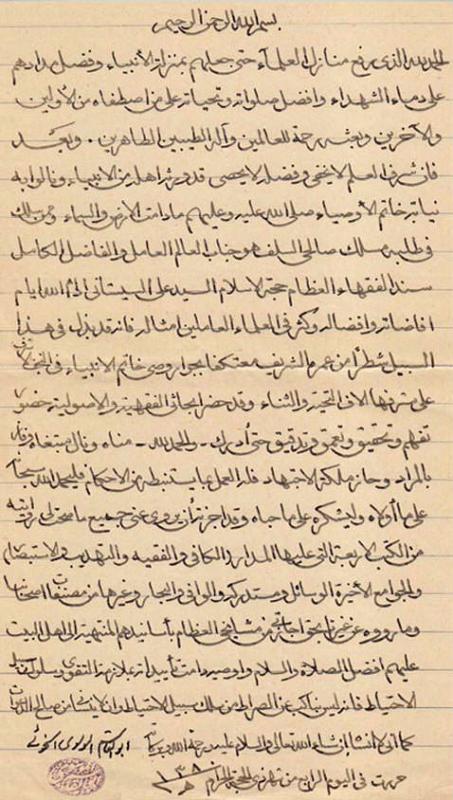 بسم الله الرحمن الرحيم
الحمد لله الذي رفع منازل العلماء حتى جعلهم بمنزلة الأنبياء وفضل مدادهم
على دماء الشهداء وافضل صلواته وتحياته على من اصطفاه من الأولين
والآخرين وبعثه رحمة للعالمين وآله الطيبين الطاهرين . وبعد
فان شرف العلم لا يخفى وفضله لا يحصى قد ورثه اهله من الانبياء ونالوا به
نيابة خاتم الأوصياء صلى الله عليه وعليهم ما دامت الارض والسماء وممن سلك
في طلبه مسلك صالحي السلف هو جناب العالم العامل والفاضل الكامل
سند الفقهاء العظام حجة الاسلام السيد علي السيستاني ادام الله ايام
افاضاته وافضاله وكثر في العلماء العاملين امثاله فانه قد بذل في هذا
السبيل شطراً من عمره الشريف معتكفا بجوار وصي خاتم الانبياء في النجف الاشرف
على مشرفها الاف التحية والثناء وقد حضر ابحاثي الفقهية والاصولية حضور
تفهم وتحقيق وتعمق وتدقيق حتى أدرك - والحمد لله - مناه ونال مبتغاه وفاز
بالمراد وحاز ملكة الاجتهاد فله العمل بما يستنبطه من الاحكام فليحمد الله سبحانه
على ما أولاه وليشكره على ما حباه وقد اجزته أن يروي عني جميع ما صحت لي روايته
من الكتب الاربعة التي عليها المدار الكافي والفقيه والتهذيب والاستبصار
والجوامع الأخيرة الوسائل ومستدركه والوافي والبحار وغيرها من مصنفات اصحابنا
وما رووه عن غيرنا بحق اجازتي من مشايخي العظام بأسانيدهم المنتهية الى اهل البيت
عليهم افضل الصلاة والسلام واوصيه دامت تأييداته بملازمة التقوى وسلوك سبيل
الاحتياط فانه ليس بناكب عن الصراط من سلك سبيل الاحتياط وان لا ينساني من صالح الدعوات
كما اني لا انساه ان شاء الله تعالى والسلام عليه ورحمة الله وبركاته ابو القاسم الموسوي الخوئي
حررت في اليوم الرابع من شهر ذي الحجة الحرام ١٣٨٠